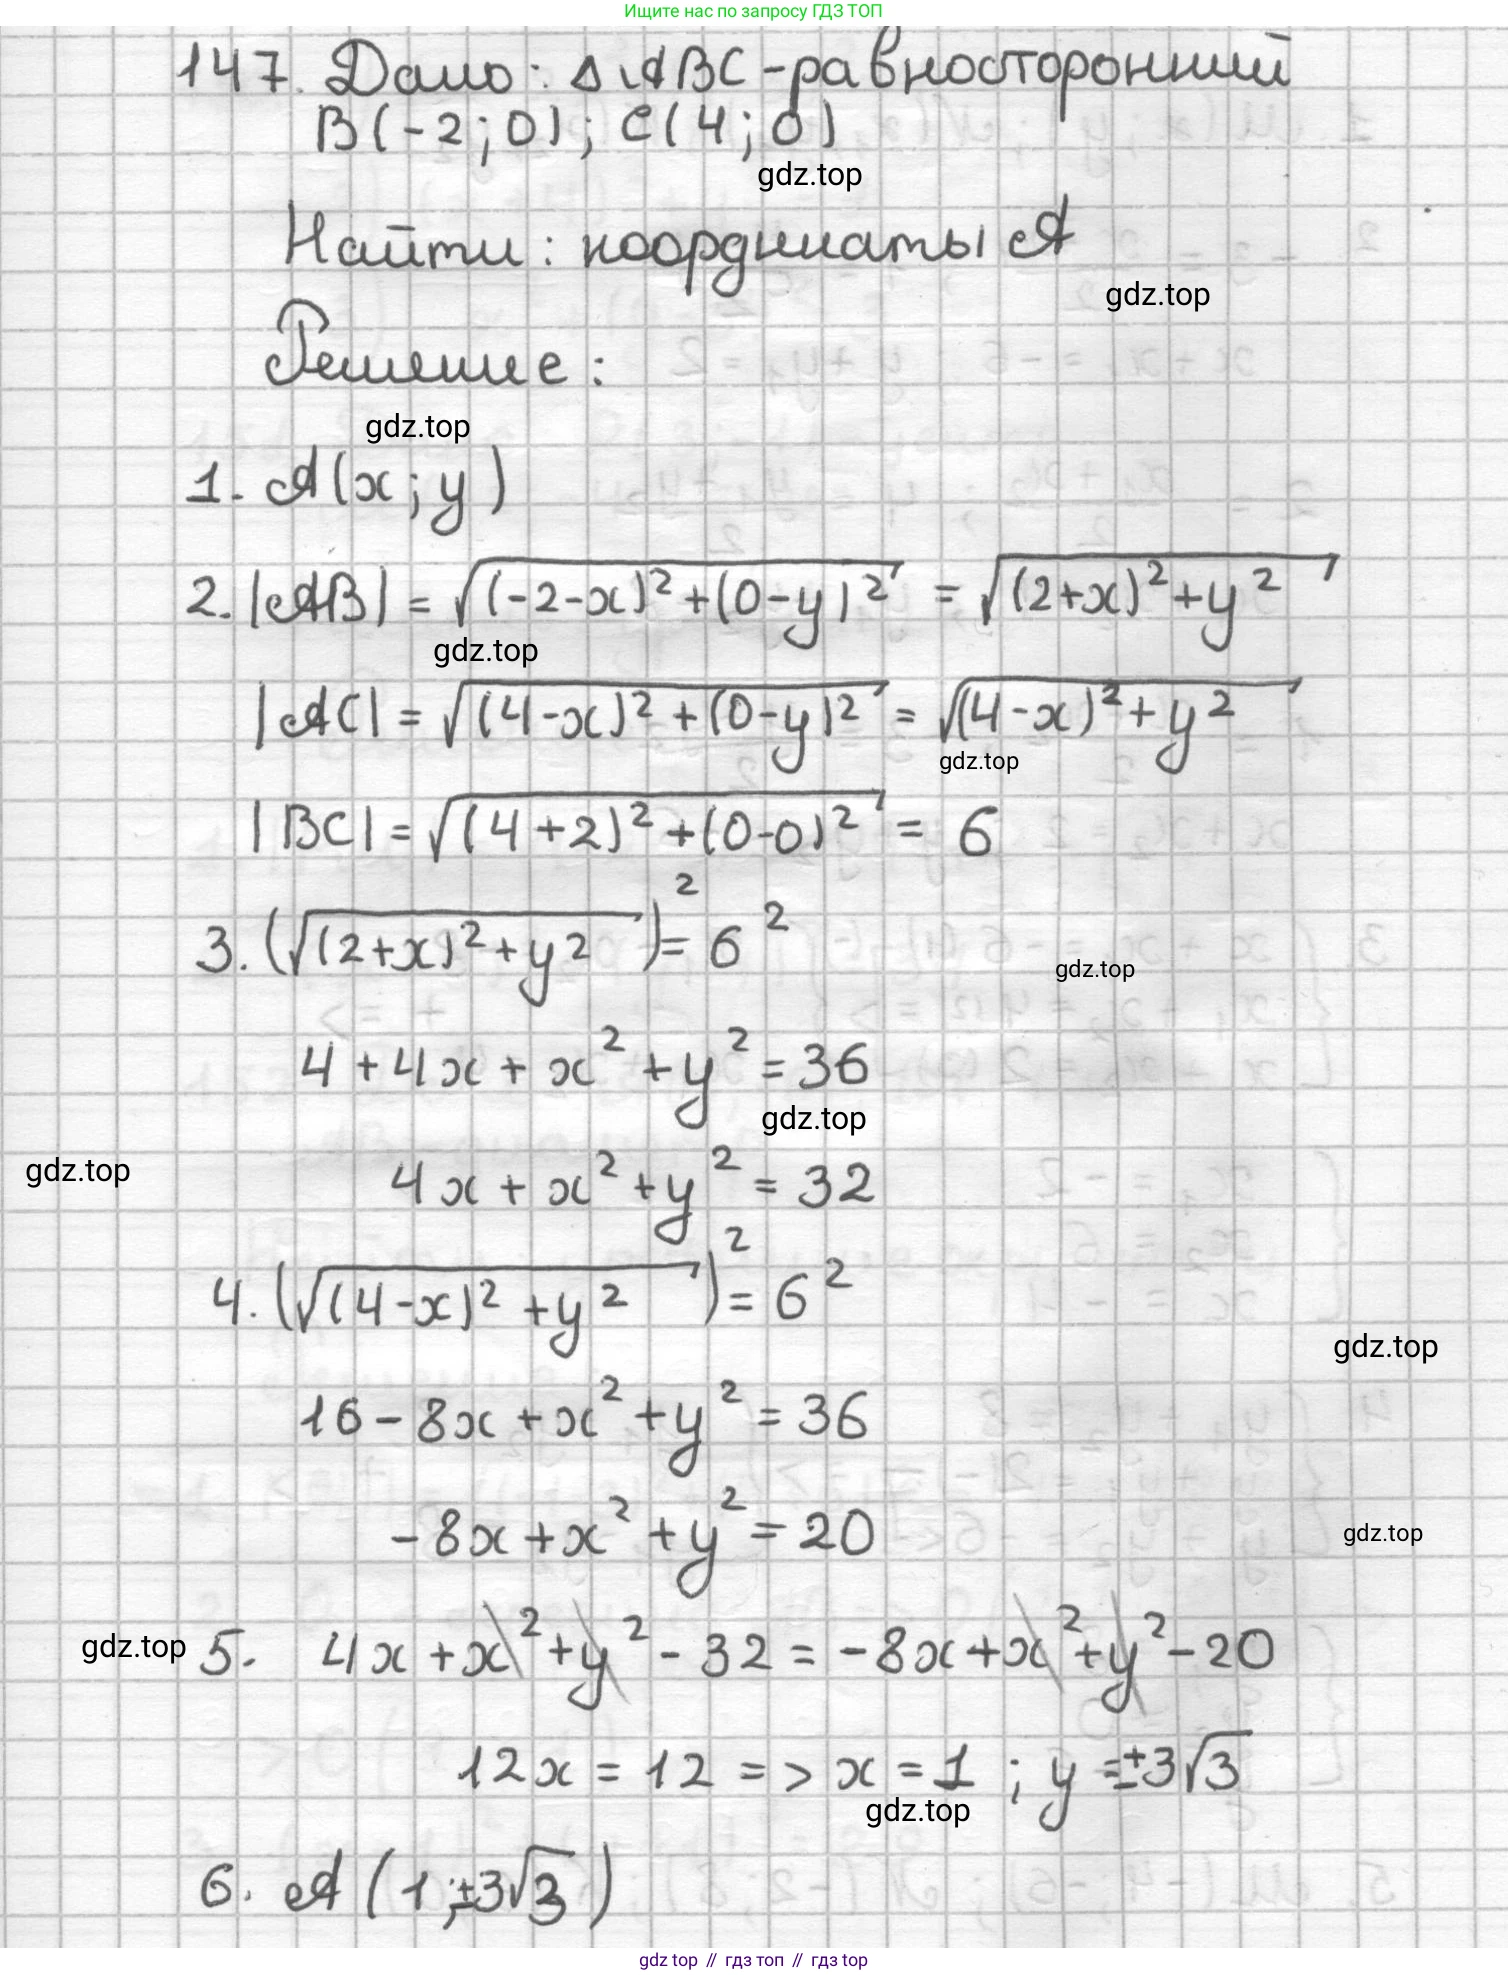 Ищите нас по запросу ГДЗ ТОП
147. Дано: ΔABC - равносторонний
B(-2;0); C(4;0)
gdz.top
Найти: координаты A
gdz.top
Решение:
gdz.top
1. A(x;y)
2. |AB| = √((-2-x)²+(0-y)²) = √((2+x)²+y²)
gdz.top
|AC| = √((4-x)²+(0-y)²) = √((4-x)²+y²)
gdz.top
|BC| = √((4+2)²+(0-0)²) = 6
3. (√((2+x)²+y²))² = 6²
gdz.top
4+4x+x²+y²=36
gdz.top
gdz.top
4x+x²+y²=32
4. (√((4-x)²+y²))² = 6²
gdz.top
16-8x+x²+y²=36
-8x+x²+y²=20
gdz.top
gdz.top
5. 4x+x²+y²-32=-8x+x²+y²-20
12x=12 => x=1; y=±3√3
gdz.top
6. A(1;±3√3)
gdz top // гдз топ // gdz top